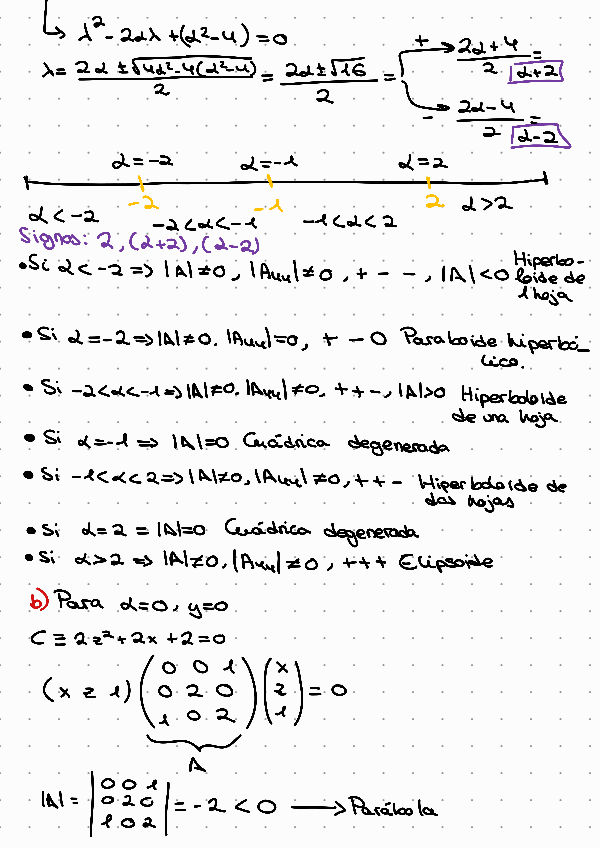 ↳ λ² - 2αλ + (α² - 4) = 0
λ = (2α ± √(4α² - 4(α² - 4)))/2 = (2α ± √16)/2 = + → (2α + 4)/2 = α+2
- → (2α - 4)/2 = α-2
α = -2 α = -1 α = 2
-2 -1 2
α < -2 -2 < α < -1 -1 < α < 2 α > 2
Signos: 2, (α+2), (α-2)
• Si α < -2 => |A| ≠ 0, |A₄₄| ≠ 0, + - -, |A| < 0 Hiperbo-
loide de
1 hoja
• Si α = -2 => |A| ≠ 0, |A₄₄| = 0, + - 0 Paraboloide hiperbó-
lico.
• Si -2 < α < -1 => |A| ≠ 0, |A₄₄| ≠ 0, + + -, |A| > 0 Hiperboloide
de una hoja
• Si α = -1 => |A| = 0 Cuádrica degenerada
• Si -1 < α < 2 => |A| ≠ 0, |A₄₄| ≠ 0, + + - Hiperboloide de
dos hojas
• Si α = 2 = |A| = 0 Cuádrica degenerada
• Si α > 2 => |A| ≠ 0, |A₄₄| ≠ 0, + + + Elipsoide
b) Para α = 0, y = 0
C ≡ 2z² + 2x + 2 = 0
0 0 1 x
(x z 1) 0 2 0 z = 0
1 0 2 1
A
0 0 1
|A| = 0 2 0 = -2 < 0 → Parábola
1 0 2